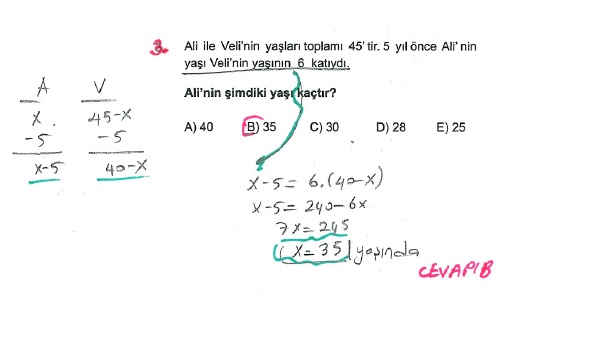 3. Ali ile Veli'nin yaşları toplamı 45' tir. 5 yıl önce Ali' nin
yaşı Veli'nin yaşının 6 katıydı.
Ali'nin şimdiki yaşı kaçtır?
A) 40 B) 35 C) 30 D) 28 E) 25
A V
x 45-x
-5 -5
x-5 40-x
x-5 = 6.(40-x)
x-5 = 240-6x
7x = 245
x = 35 yaşında
CEVAP B